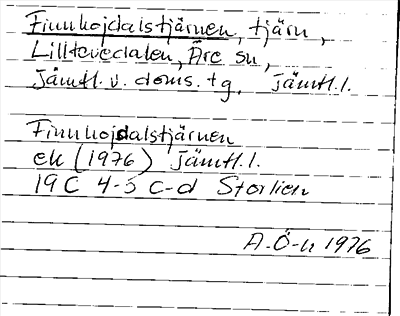 Finnhojdalstjärnen, tjärn,
Lilltevedalen, Åre sn,
Jämtl. v. doms. tg. Jämtl. l.
Finnhojdalstjärnen
ek (1976) Jämtl. l.
19 C 4-5 c-d Storlien
A. Ö-n 1976